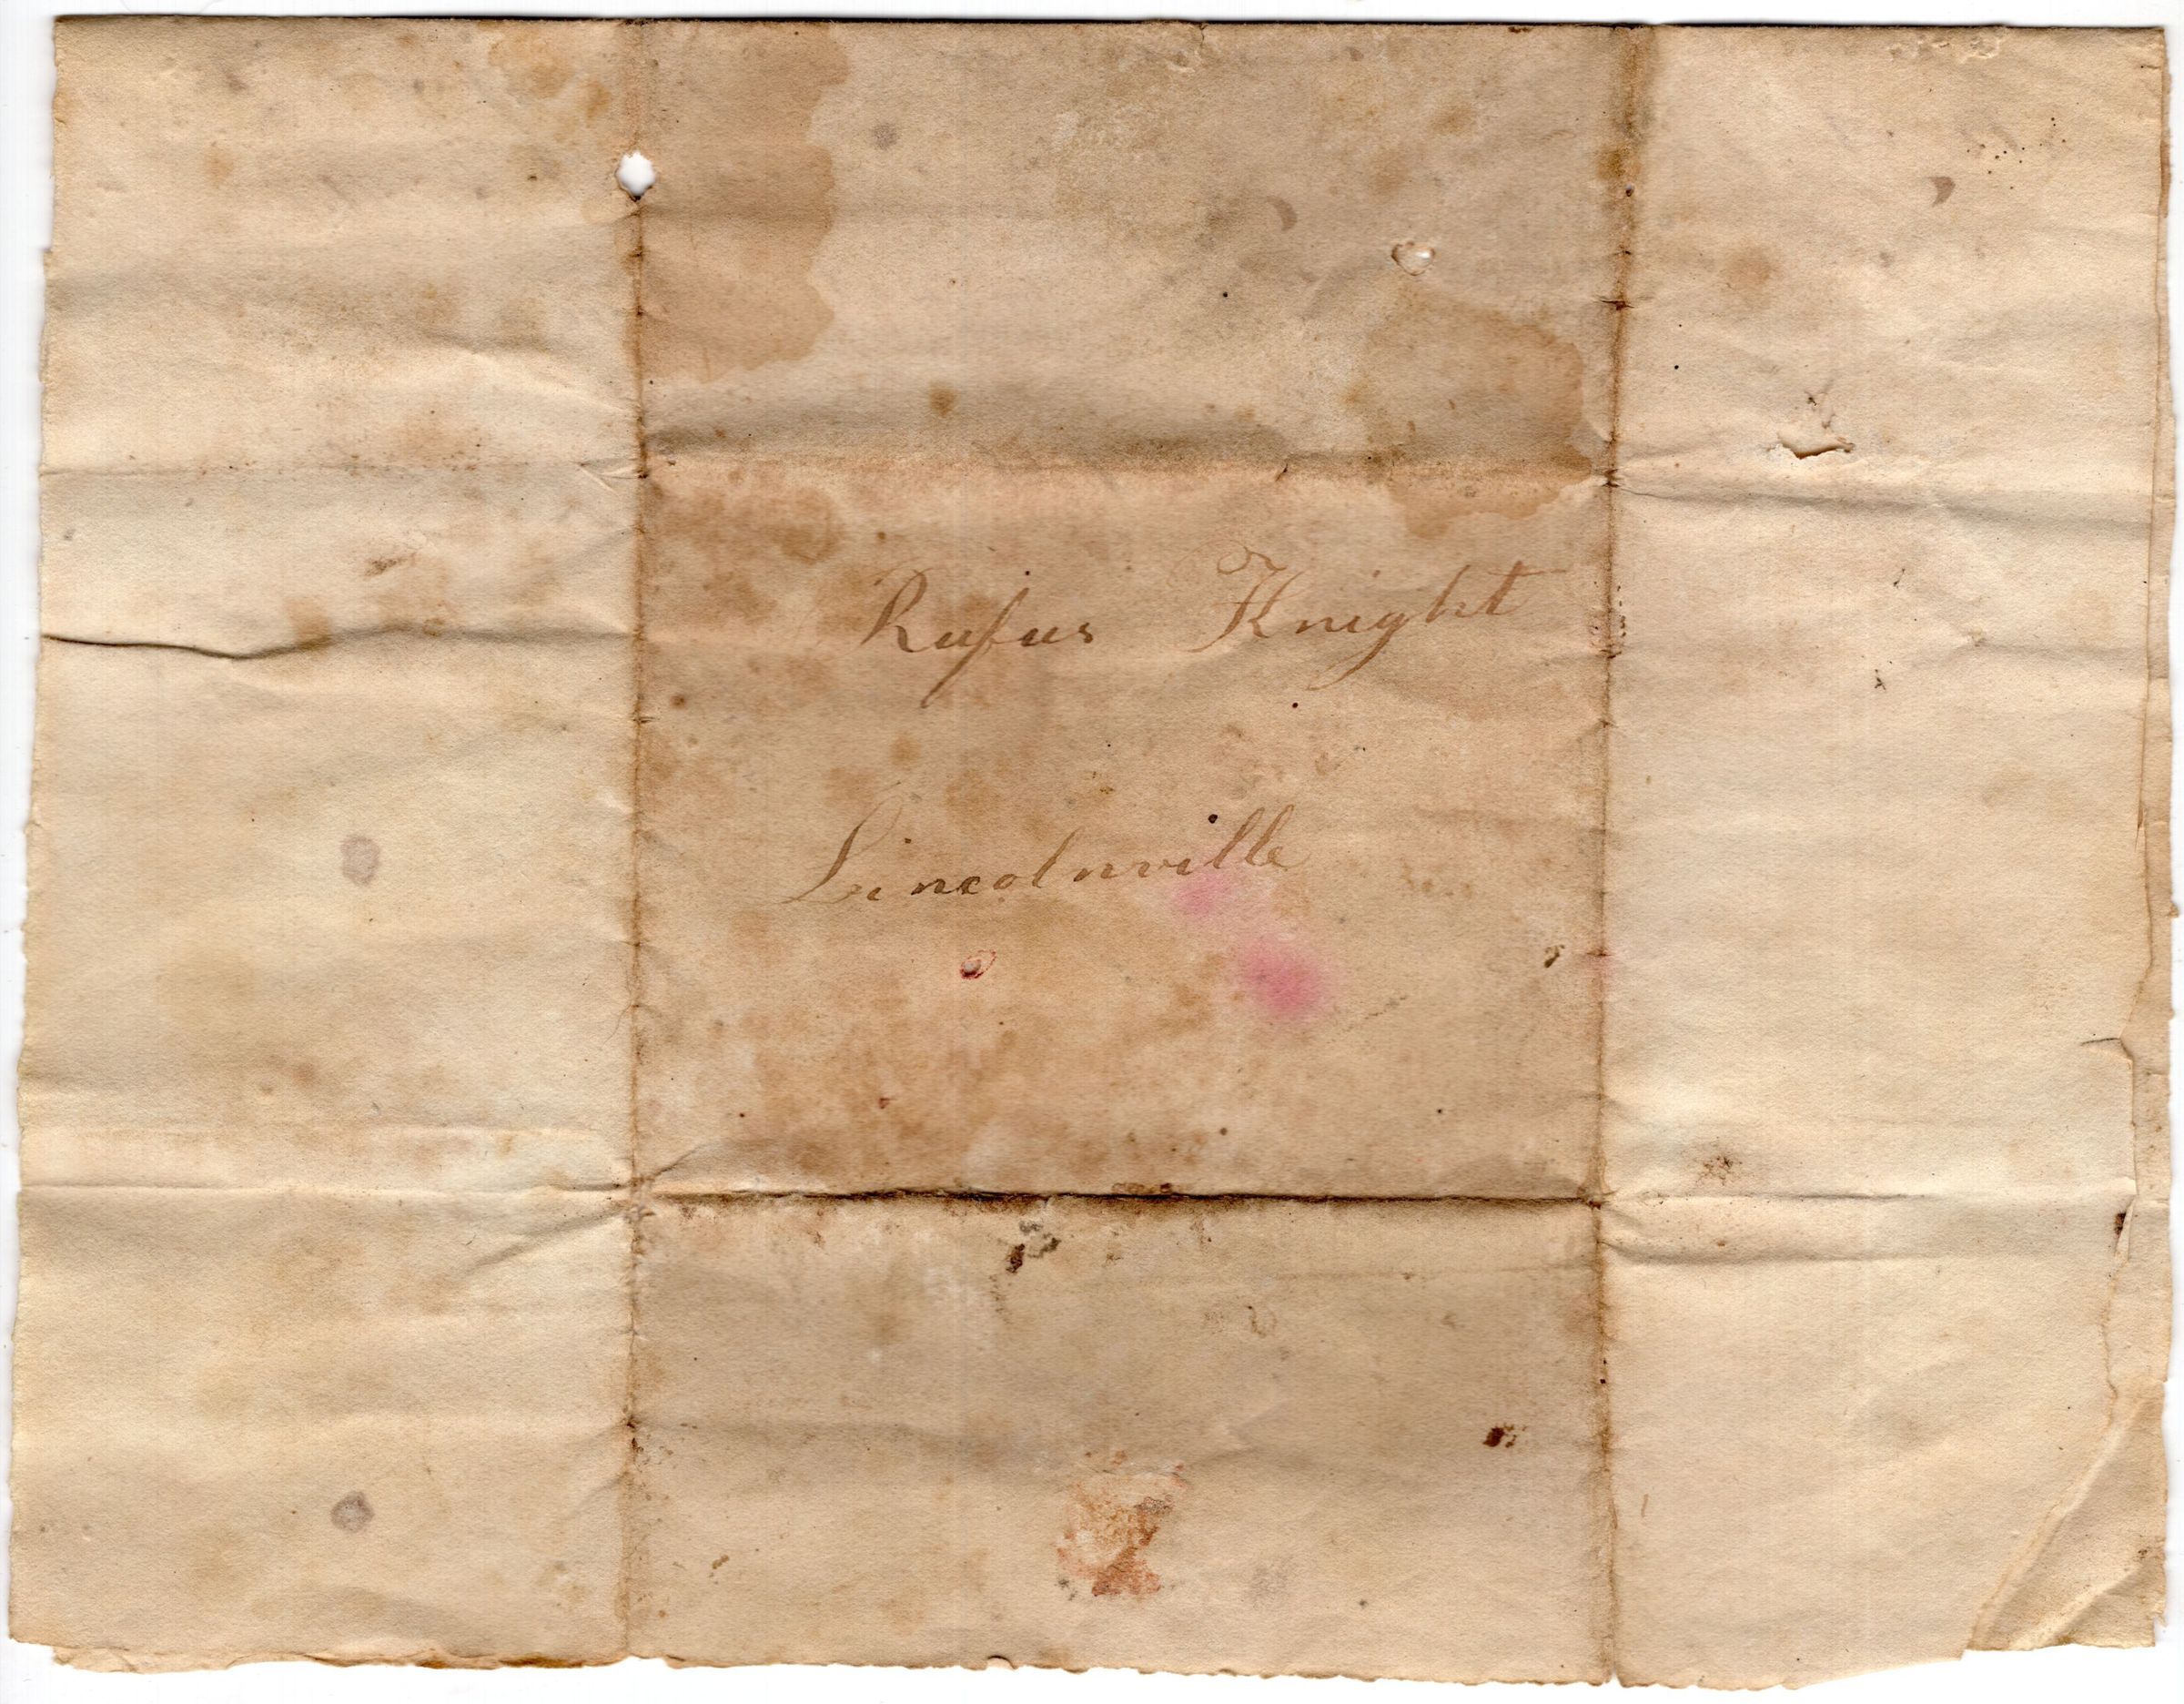 Rufus Knight
Lincolnville